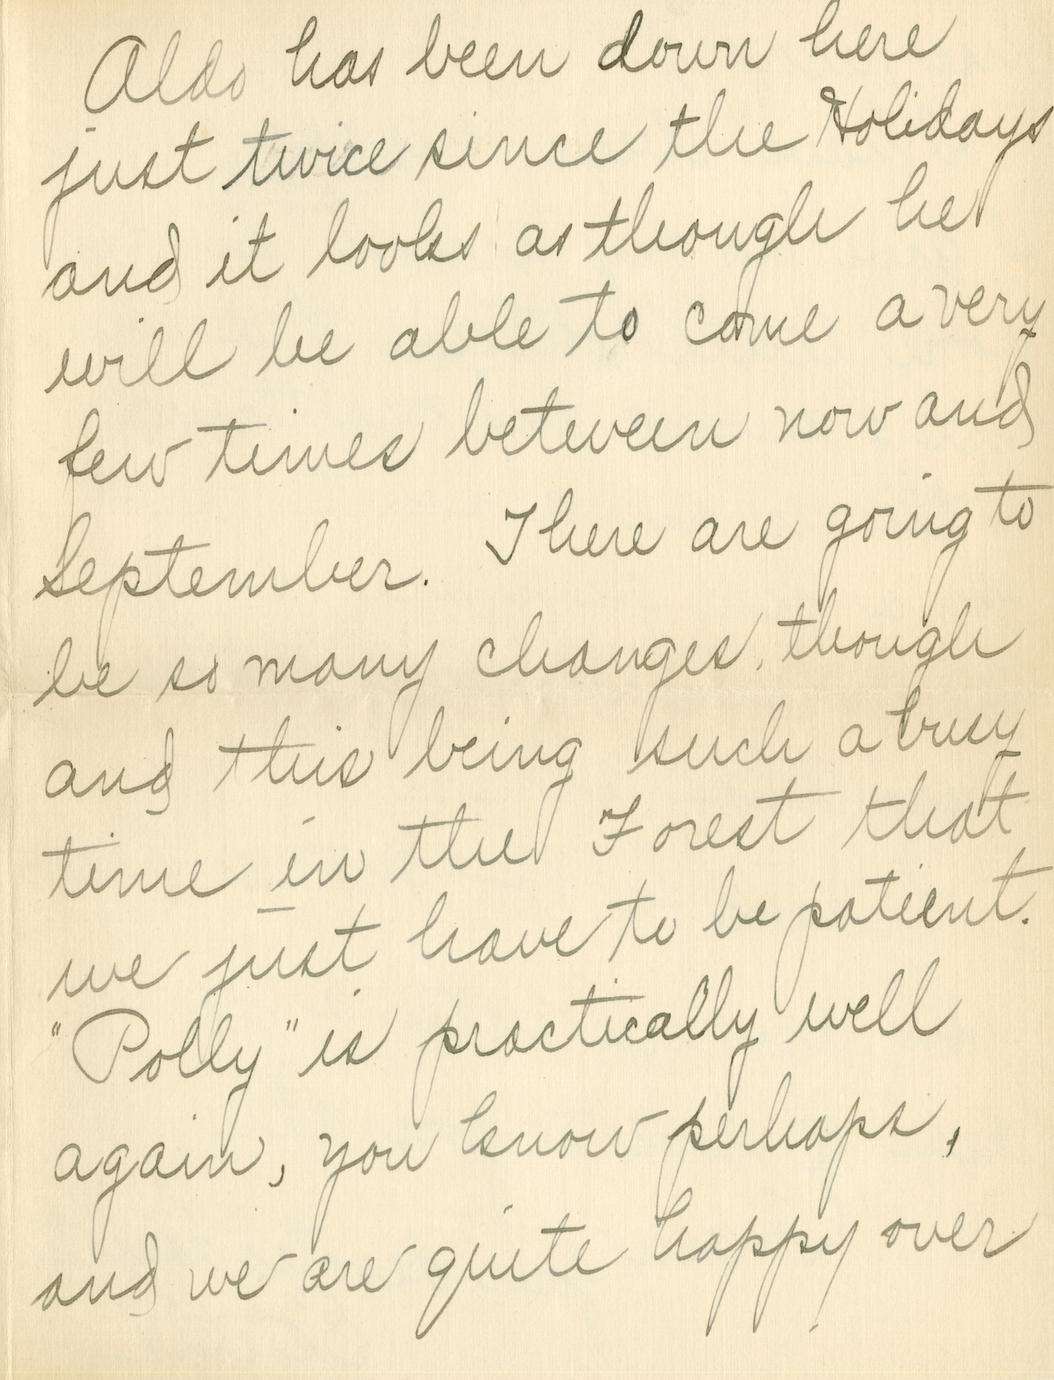 Aldo has been down here
just twice since the Holidays
and it looks as though he
will be able to come a very
few times between now and
September. There are going to
be so many changes, though
and this being such a busy
time in the Forest that
we just have to be patient.
"Polly" is practically well
again, you know perhaps,
and we are quite happy over